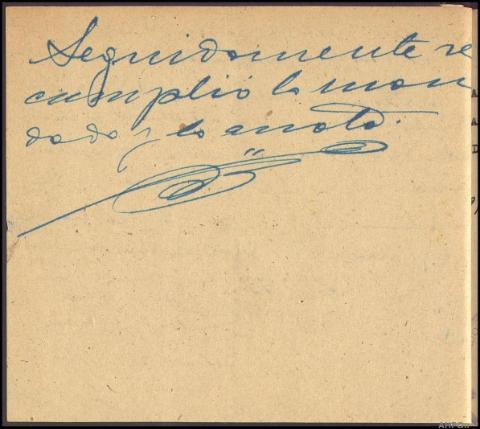 Seguidamente se
cumplió lo man
dado y lo anoto.